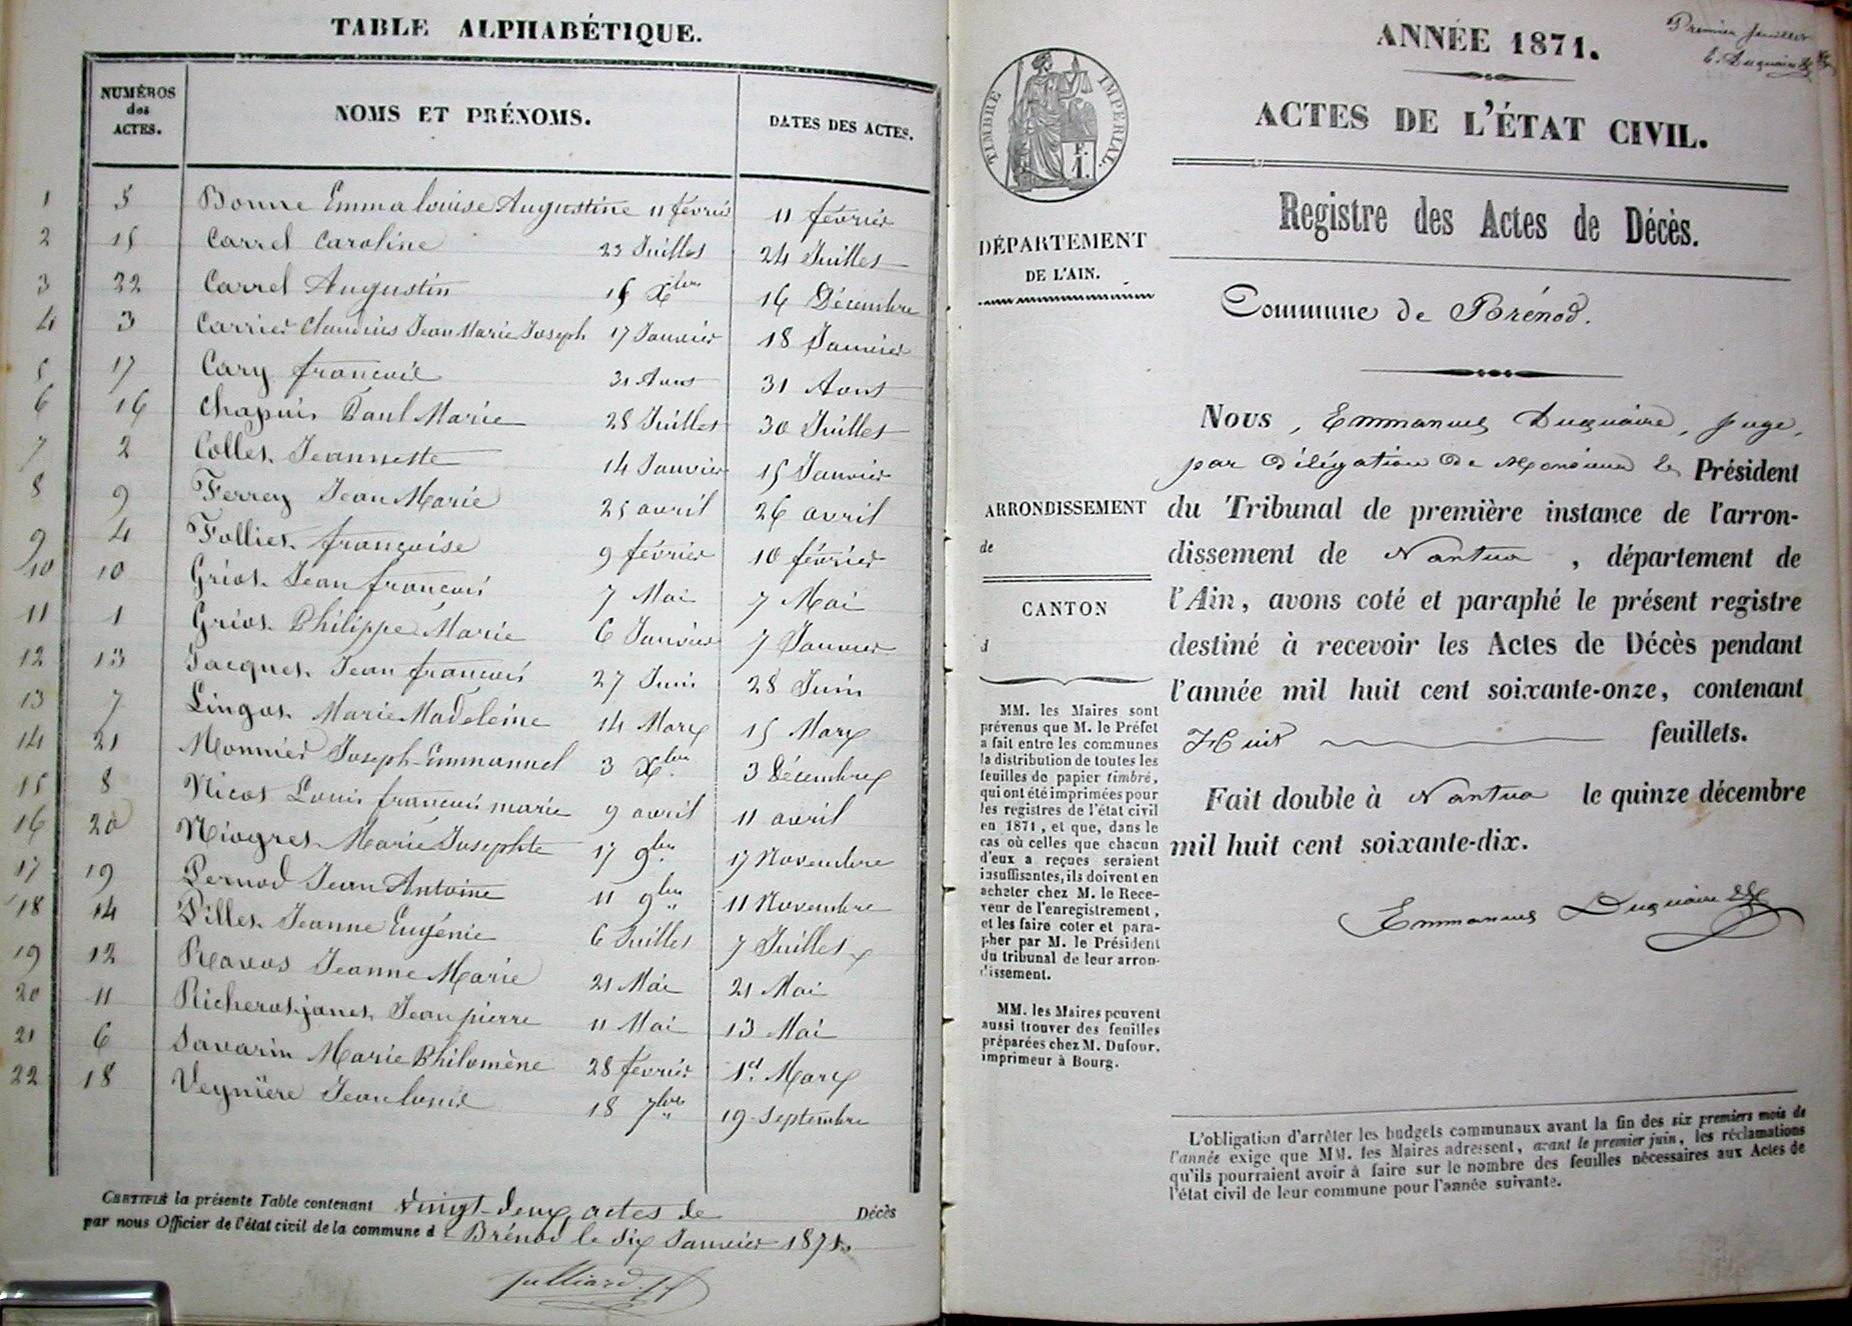 TABLE ALPHABÉTIQUE.
NUMÉROS
des
ACTES.
NOMS ET PRÉNOMS.
DATES DES ACTES.
1 5 Bonne Emma louise Augustine 11 février 11 février
2 15 Carrel Caroline 23 Juillet 24 Juillet
3 22 Carrel Augustin 15 Xbre 16 Décembre
4 3 Carrier Claudius Jean Marie Joseph 17 Janvier 18 Janvier
5 17 Cary françois 31 Aout 31 Aout
6 16 Chapuis Paul Marie 28 Juillet 30 Juillet
7 2 Collet Jeannette 14 Janvier 15 Janvier
8 9 Ferrey Jean Marie 25 avril 26 avril
9 4 Folliet françoise 9 février 10 février
10 10 Griot Jean françois 7 Mai 7 Mai
11 1 Griot Philippe Marie 6 Janvier 7 Janvier
12 13 Jacquet Jean françois 27 Juin 28 Juin
13 7 Lingot Marie Madeleine 14 Mars 15 Mars
14 21 Monnier Joseph-Emmanuel 3 Xbre 3 Décembre
15 8 Nicot Louis françois marie 9 avril 11 avril
16 20 Niogret Marie Josephte 17 9bre 17 Novembre
17 19 Pernod Jean Antoine 11 9bre 11 Novembre
18 14 Pillet Jeanne Eugénie 6 Juillet 7 Juillet
19 12 Ravot Jeanne Marie 21 Mai 21 Mai
20 11 Richerot-janet Jean pierre 11 Mai 13 Mai
21 6 Savarin Marie Philomène 28 février 1er Mars
22 18 Veynière Jean louis 18 7bre 19 Septembre
CERTIFIÉ la présente Table contenant vingt-deux actes de Décès
par nous Officier de l'état civil de la commune d Brénod le six Janvier 1871.
Julliard
Premier feuillet
E. Duquaire
ANNÉE 1871.
ACTES DE L'ÉTAT CIVIL.
Registre des Actes de Décès.
Commune de Brénod.
TIMBRE IMPÉRIAL.
F.
1.
DÉPARTEMENT
DE L'AIN.
ARRONDISSEMENT
de
CANTON
d
MM. les Maires sont
prévenus que M. le Préfet
a fait entre les communes
la distribution de toutes les
feuilles de papier timbré,
qui ont été imprimées pour
les registres de l'état civil
en 1871, et que, dans le
cas où celles que chacun
d'eux a reçues seraient
insuffisantes, ils doivent en
acheter chez M. le Rece-
veur de l'enregistrement,
et les faire coter et para-
pher par M. le Président
du tribunal de leur arron-
dissement.
MM. les Maires peuvent
aussi trouver des feuilles
préparées chez M. Dufour,
imprimeur à Bourg.
Nous, Emmanuel Duquaire, juge,
par délégation de Monsieur le Président
du Tribunal de première instance de l'arron-
dissement de Nantua, département de
l'Ain, avons coté et paraphé le présent registre
destiné à recevoir les Actes de Décès pendant
l'année mil huit cent soixante-onze, contenant
Huit feuillets.
Fait double à Nantua le quinze décembre
mil huit cent soixante-dix.
Emmanuel Duquaire
L'obligation d'arrêter les budgets communaux avant la fin des six premiers mois de
l'année exige que MM. les Maires adressent, avant le premier juin, les réclamations
qu'ils pourraient avoir à faire sur le nombre des feuilles nécessaires aux Actes de
l'état civil de leur commune pour l'année suivante.